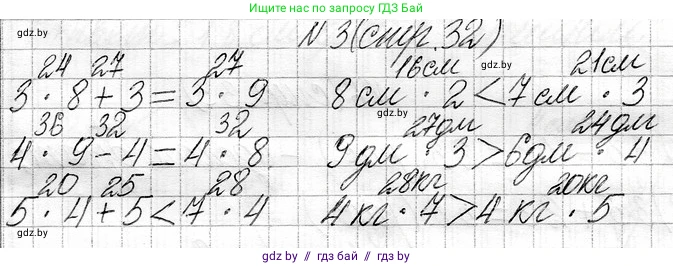 Ищите нас по запросу ГДЗ Бай
gdz.by
N 3 (стр. 32)
24 27 27
3 · 8 + 3 = 3 · 9
16 см gdz.by 21 см
8 см · 2 < 7 см · 3
36 32 32
4 · 9 - 4 = 4 · 8
27 дм 24 дм
9 дм · 3 > 6 дм · 4
gdz.by
20 25 28
5 · 4 + 5 < 7 · 4
28 кг 20 кг
4 кг · 7 > 4 кг · 5
gdz.by
gdz.by / гдз бай / гдз.бай